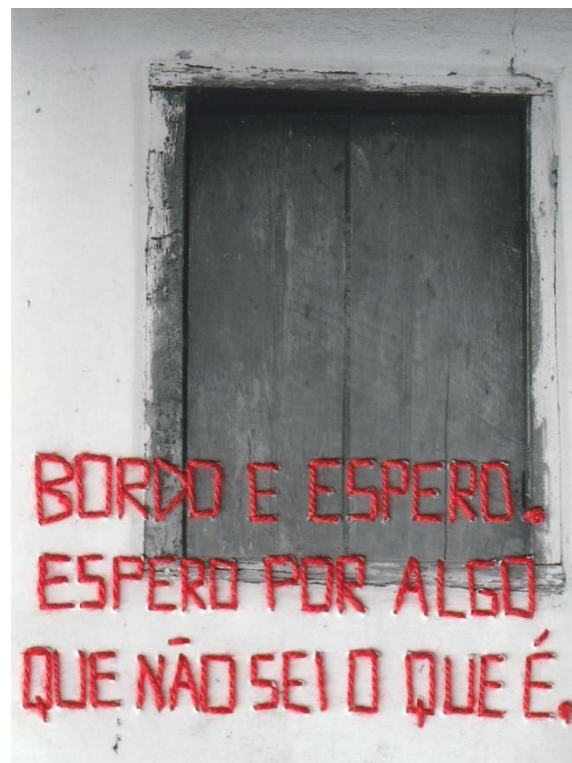 BORDO E ESPERO.
ESPERO POR ALGO
QUE NÃO SEI O QUE É.